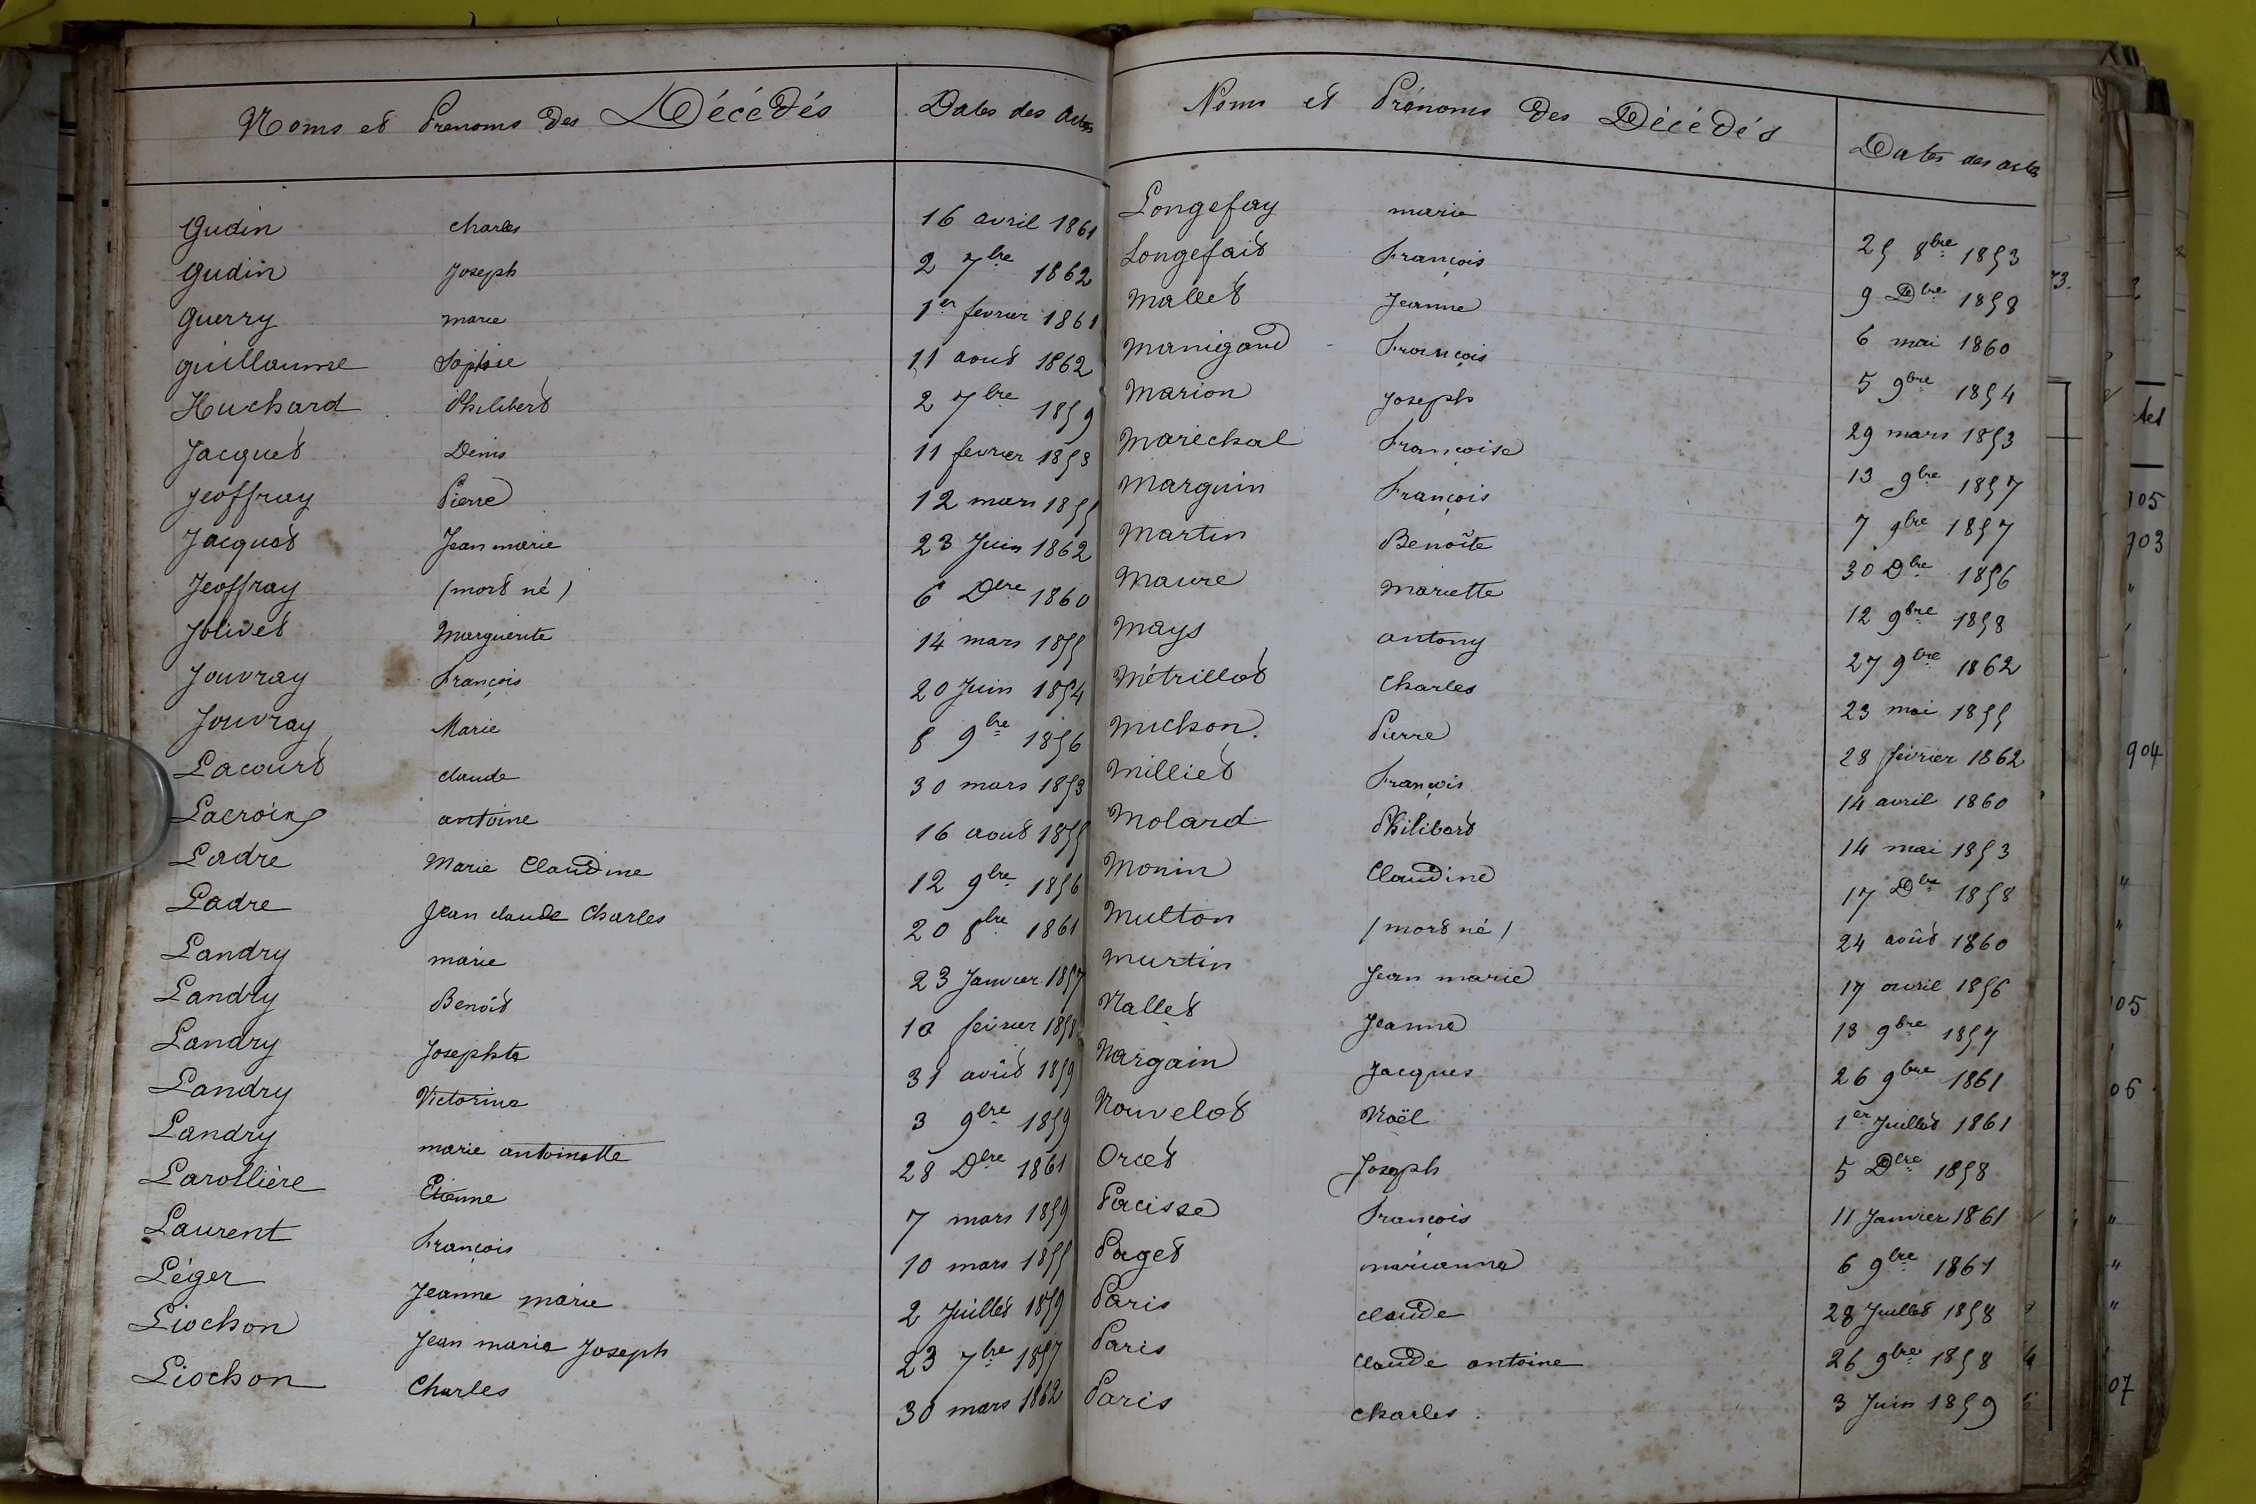 Noms et Prenoms des Décédés Dates des Actes
Gudin Charles 16 avril 1861
Gudin Joseph 2 7bre 1862
Guerry marie 1er fevrier 1861
Guillaume Sophie 11 aout 1862
Huchard Philibert 2 7bre 1859
Jacquet Denis 11 fevrier 1853
Jeoffray Pierre 12 mars 1855
Jacquot Jean marie 23 Juin 1862
Jeoffray (mort né) 6 Dbre 1860
Jolivet Marguerite 14 mars 1855
Jouvray François 20 Juin 1854
Jouvray Marie 8 9bre 1856
Lacourt claude 30 mars 1853
Lacroix antoine 16 aout 1855
Ladre Marie Claudine 12 9bre 1856
Ladre Jean claude Charles 20 8bre 1861
Landry marie 23 Janvier 1857
Landry Benoit 10 fevrier 1858
Landry Josephte 31 août 1859
Landry Victorine 3 9bre 1859
Landry marie antoinette 28 Dbre 1861
Larollière Etienne 7 mars 1859
Laurent François 10 mars 1855
Léger Jeanne marie 2 Juillet 1859
Liochon Jean marie Joseph 23 7bre 1857
Liochon Charles 30 mars 1862
Noms et Prénoms des Décédés Dates des actes
Longefay marie 25 8bre 1853
Longefait François 9 Dbre 1858
Mallet Jeanne 6 mai 1860
Manigand François 5 9bre 1854
Marion Joseph 29 mars 1853
Maréchal Françoise 13 9bre 1857
Marguin François 7 9bre 1857
Martin Benoîte 30 Dbre 1856
Maure Mariette 12 9bre 1858
Mays antony 27 9bre 1862
Métrillot Charles 23 mai 1855
Michon Pierre 28 février 1862
Milliet François 14 avril 1860
Molard Philibert 14 mai 1853
Monin Claudine 17 Dbre 1858
Multon (mort né) 24 août 1860
Murtin Jean marie 17 avril 1856
Nallet Jeanne 13 9bre 1857
Nargain Jacques 26 9bre 1861
Nouvelot Noël 1er Juillet 1861
Orcet Joseph 5 Dbre 1858
Pacisse François 11 Janvier 1861
Paget marianne 6 9bre 1861
Paris claude 28 Juillet 1858
Paris Claude antoine 26 9bre 1858
Paris Charles 3 Juin 1859